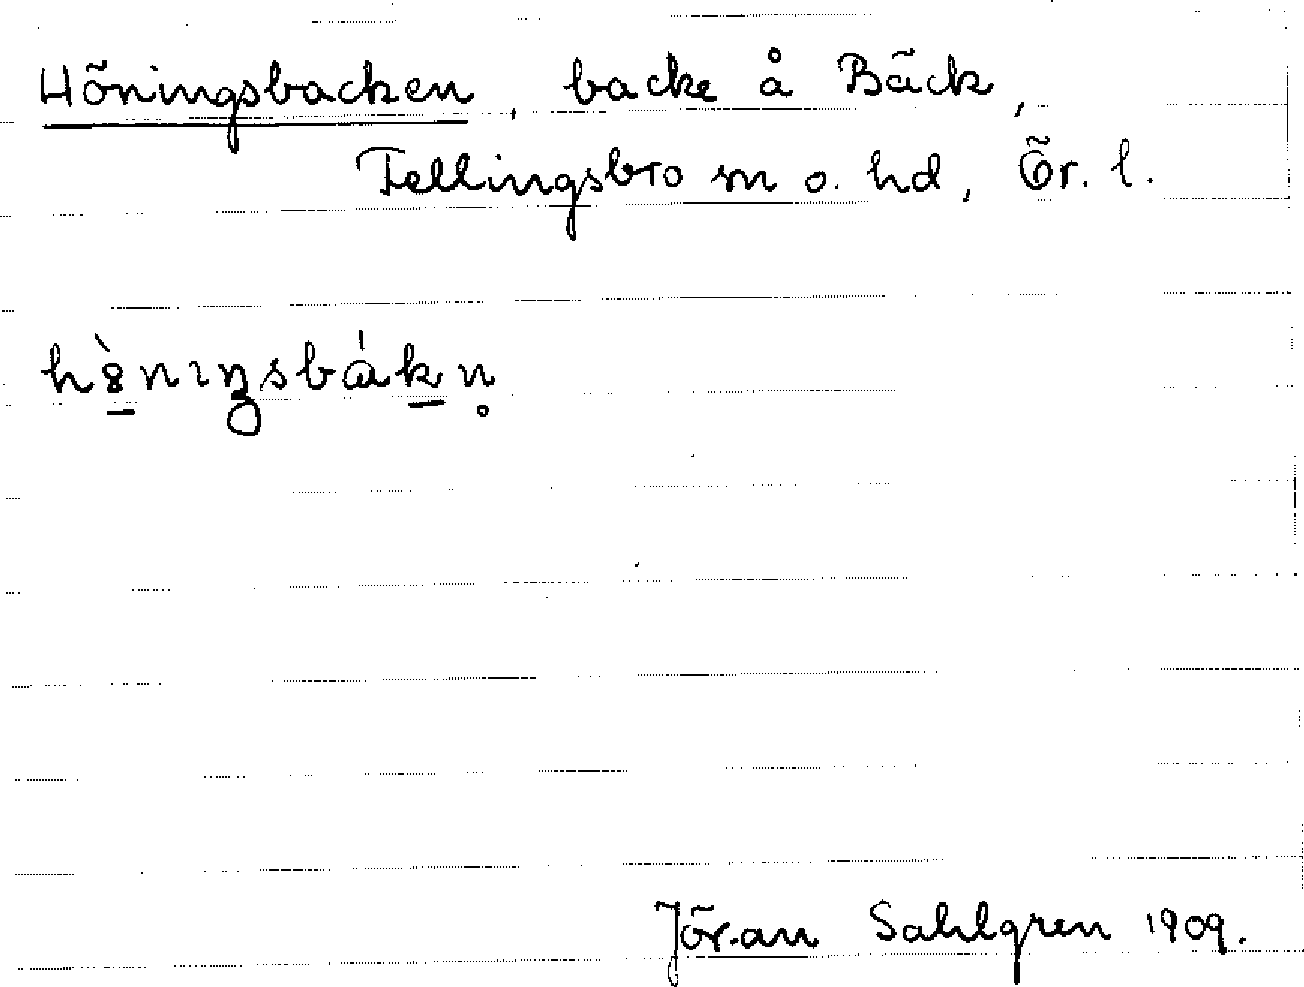 Höningsbacken, backe å Bäck,
Fellingsbro sn o. hd, Ör. l.
hö̀nıŋsbákn̥
Jöran Sahlgren 1909.